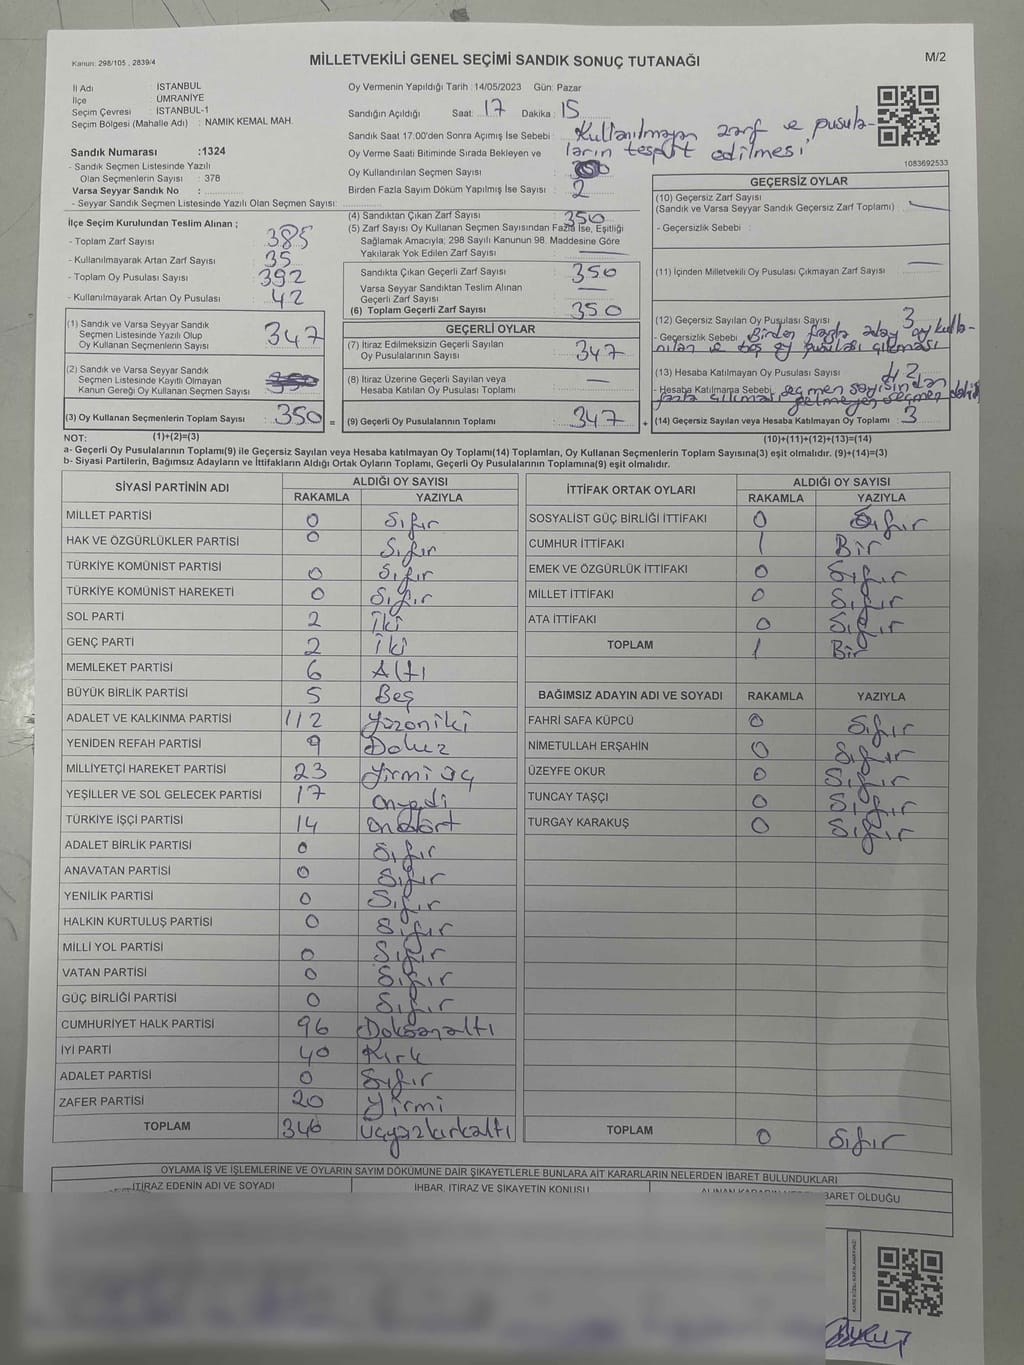 Kanun: 298/105 , 2839/4
MİLLETVEKİLİ GENEL SEÇİMİ SANDIK SONUÇ TUTANAĞI
M/2
İl Adı : İSTANBUL
İlçe : ÜMRANİYE
Seçim Çevresi : İSTANBUL-1
Seçim Bölgesi (Mahalle Adı) : NAMIK KEMAL MAH.
Sandık Numarası :1324
- Sandık Seçmen Listesinde Yazılı
Olan Seçmenlerin Sayısı : 378
Varsa Seyyar Sandık No :
- Seyyar Sandık Seçmen Listesinde Yazılı Olan Seçmen Sayısı:
Oy Vermenin Yapıldığı Tarih : 14/05/2023 Gün: Pazar
Sandığın Açıldığı Saat: 17 Dakika: 15
Sandık Saat 17.00'den Sonra Açılmış İse Sebebi : Kullanılmayan zarf ve pusula-
Oy Verme Saati Bitiminde Sırada Bekleyen ve ların tespit edilmesi
Oy Kullandırılan Seçmen Sayısı
Birden Fazla Sayım Döküm Yapılmış İse Sayısı : 2
1083692533
İlçe Seçim Kurulundan Teslim Alınan ;
- Toplam Zarf Sayısı : 385
- Kullanılmayarak Artan Zarf Sayısı : 35
- Toplam Oy Pusulası Sayısı : 392
- Kullanılmayarak Artan Oy Pusulası : 42
(1) Sandık ve Varsa Seyyar Sandık
Seçmen Listesinde Yazılı Olup
Oy Kullanan Seçmenlerin Sayısı 347
(2) Sandık ve Varsa Seyyar Sandık
Seçmen Listesinde Kayıtlı Olmayan
Kanun Gereği Oy Kullanan Seçmen Sayısı
(3) Oy Kullanan Seçmenlerin Toplam Sayısı 350 =
(4) Sandıktan Çıkan Zarf Sayısı 350
(5) Zarf Sayısı Oy Kullanan Seçmen Sayısından Fazla İse, Eşitliği
Sağlamak Amacıyla; 298 Sayılı Kanunun 98. Maddesine Göre
Yakılarak Yok Edilen Zarf Sayısı : —
Sandıkta Çıkan Geçerli Zarf Sayısı 350
Varsa Seyyar Sandıktan Teslim Alınan
Geçerli Zarf Sayısı —
(6) Toplam Geçerli Zarf Sayısı 350
GEÇERLİ OYLAR
(7) İtiraz Edilmeksizin Geçerli Sayılan
Oy Pusulalarının Sayısı 347
(8) İtiraz Üzerine Geçerli Sayılan veya
Hesaba Katılan Oy Pusulası Toplamı —
(9) Geçerli Oy Pusulalarının Toplamı 347 +
GEÇERSİZ OYLAR
(10) Geçersiz Zarf Sayısı
(Sandık ve Varsa Seyyar Sandık Geçersiz Zarf Toplamı) : —
- Geçersizlik Sebebi :
(11) İçinden Milletvekili Oy Pusulası Çıkmayan Zarf Sayısı —
(12) Geçersiz Sayılan Oy Pusulası Sayısı 3
- Geçersizlik Sebebi : Birden fazla aday oy kulla-
nılan ve boş oy pusulası çıkması
(13) Hesaba Katılmayan Oy Pusulası Sayısı
- Hesaba Katılmama Sebebi : seçmen sayısından
fazla çıkması
(14) Geçersiz Sayılan veya Hesaba Katılmayan Oy Toplamı : 3
NOT: (1)+(2)=(3)
(10)+(11)+(12)+(13)=(14)
a- Geçerli Oy Pusulalarının Toplamı(9) ile Geçersiz Sayılan veya Hesaba katılmayan Oy Toplamı(14) Toplamları, Oy Kullanan Seçmenlerin Toplam Sayısına(3) eşit olmalıdır. (9)+(14)=(3)
b- Siyasi Partilerin, Bağımsız Adayların ve İttifakların Aldığı Ortak Oyların Toplamı, Geçerli Oy Pusulalarının Toplamına(9) eşit olmalıdır.
SİYASİ PARTİNİN ADI ALDIĞI OY SAYISI
RAKAMLA YAZIYLA
MİLLET PARTİSİ 0 Sıfır
HAK VE ÖZGÜRLÜKLER PARTİSİ 0 Sıfır
TÜRKİYE KOMÜNİST PARTİSİ 0 Sıfır
TÜRKİYE KOMÜNİST HAREKETİ 0 Sıfır
SOL PARTİ 2 İki
GENÇ PARTİ 2 İki
MEMLEKET PARTİSİ 6 Altı
BÜYÜK BİRLİK PARTİSİ 5 Beş
ADALET VE KALKINMA PARTİSİ 112 yüzoniki
YENİDEN REFAH PARTİSİ 9 Dokuz
MİLLİYETÇİ HAREKET PARTİSİ 23 yirmi üç
YEŞİLLER VE SOL GELECEK PARTİSİ 17 onyedi
TÜRKİYE İŞÇİ PARTİSİ 14 ondört
ADALET BİRLİK PARTİSİ 0 Sıfır
ANAVATAN PARTİSİ 0 Sıfır
YENİLİK PARTİSİ 0 Sıfır
HALKIN KURTULUŞ PARTİSİ 0 Sıfır
MİLLİ YOL PARTİSİ 0 Sıfır
VATAN PARTİSİ 0 Sıfır
GÜÇ BİRLİĞİ PARTİSİ 0 Sıfır
CUMHURİYET HALK PARTİSİ 96 Doksanaltı
İYİ PARTİ 40 Kırk
ADALET PARTİSİ 0 Sıfır
ZAFER PARTİSİ 20 Yirmi
TOPLAM 346 üçyüzkırkaltı
İTTİFAK ORTAK OYLARI ALDIĞI OY SAYISI
RAKAMLA YAZIYLA
SOSYALİST GÜÇ BİRLİĞİ İTTİFAKI 0 Sıfır
CUMHUR İTTİFAKI 1 Bir
EMEK VE ÖZGÜRLÜK İTTİFAKI 0 Sıfır
MİLLET İTTİFAKI 0 Sıfır
ATA İTTİFAKI 0 Sıfır
TOPLAM 1 Bir
BAĞIMSIZ ADAYIN ADI VE SOYADI RAKAMLA YAZIYLA
FAHRİ SAFA KÜPCÜ 0 Sıfır
NİMETULLAH ERŞAHİN 0 Sıfır
ÜZEYFE OKUR 0 Sıfır
TUNCAY TAŞÇI 0 Sıfır
TURGAY KARAKUŞ 0 Sıfır
TOPLAM 0 Sıfır
OYLAMA İŞ VE İŞLEMLERİNE VE OYLARIN SAYIM DÖKÜMÜNE DAİR ŞİKAYETLERLE BUNLARA AİT KARARLARIN NELERDEN İBARET BULUNDUKLARI
İTİRAZ EDENİN ADI VE SOYADI İHBAR, İTİRAZ VE ŞİKAYETİN KONUSU ALINAN KARARIN İBARET OLDUĞU